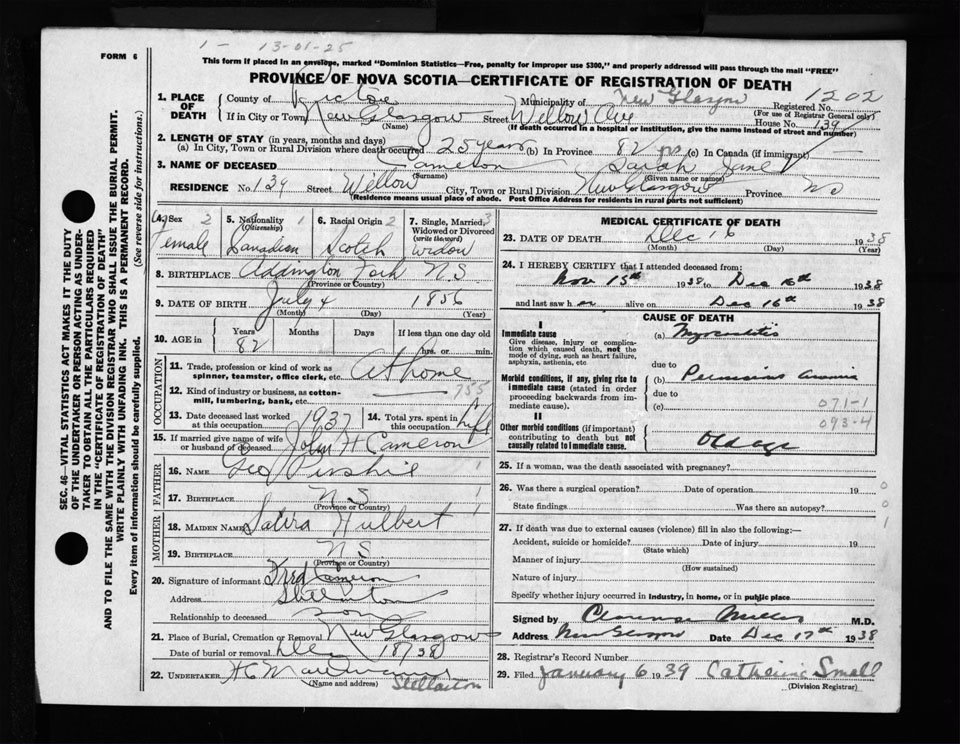 1 - 13-01-25
FORM 6
This form if placed in an envelope, marked "Dominion Statistics—Free, penalty for improper use $300," and properly addressed will pass through the mail "FREE"
PROVINCE OF NOVA SCOTIA—CERTIFICATE OF REGISTRATION OF DEATH
SEC. 46—VITAL STATISTICS ACT MAKES IT THE DUTY
OF THE UNDERTAKER OR PERSON ACTING AS UNDER-
TAKER TO OBTAIN ALL THE PARTICULARS REQUIRED
IN THE "CERTIFICATE OF REGISTRATION OF DEATH"
AND TO FILE THE SAME WITH THE DIVISION REGISTRAR WHO SHALL ISSUE THE BURIAL PERMIT.
WRITE PLAINLY WITH UNFADING INK. THIS IS A PERMANENT RECORD.
Every item of information should be carefully supplied. (See reverse side for instructions.)
1. PLACE OF DEATH
County of Pictou Municipality of New Glasgow Registered No. 1202
(For use of Registrar General only)
If in City or Town New Glasgow Street Willow Ave House No. 139
(Name) (If death occurred in a hospital or institution, give the name instead of street and number)
2. LENGTH OF STAY (in years, months and days)
(a) In City, Town or Rural Division where death occurred 25 years (b) In Province 82 yrs (c) In Canada (if immigrant)
3. NAME OF DECEASED Cameron Sarah Jane
(Surname) (Given name or names)
RESIDENCE No. 139 Street Willow City, Town or Rural Division New Glasgow Province NS
(Residence means usual place of abode. Post Office Address for residents in rural parts not sufficient)
4. Sex 2 5. Nationality 1 6. Racial Origin 2 7. Single, Married, 3
(Citizenship) Widowed or Divorced
(write the word)
Female Canadian Scotch Widow
8. BIRTHPLACE Addington Fork N.S
(Province or Country)
9. DATE OF BIRTH July 4 1856
(Month) (Day) (Year)
10. AGE in Years Months Days If less than one day old
82 hrs. or min.
OCCUPATION
11. Trade, profession or kind of work as
spinner, teamster, office clerk, etc. At home
12. Kind of industry or business, as cotton-
mill, lumbering, bank, etc. 755
13. Date deceased last worked
at this occupation 1937
14. Total yrs. spent in
this occupation Life
15. If married give name of wife
or husband of deceased John H Cameron
FATHER
16. NAME Geo
17. BIRTHPLACE N S
(Province or Country)
MOTHER
18. MAIDEN NAME Hulbert
19. BIRTHPLACE N S
(Province or Country)
20. Signature of informant Fred Cameron
Address Stellarton
Relationship to deceased son
21. Place of Burial, Cremation or Removal New Glasgow
Date of burial or removal Dec 18/38
22. UNDERTAKER
(Name and address) Stellarton
MEDICAL CERTIFICATE OF DEATH
23. DATE OF DEATH Dec 16 1938
(Month) (Day)
24. I HEREBY CERTIFY that I attended deceased from:
Nov 15th 1938 to Dec 16th 1938
and last saw her alive on Dec 16th 1938
CAUSE OF DEATH
I
Immediate cause
Give disease, injury or complica-
tion which caused death, not the
mode of dying, such as heart failure,
asphyxia, asthenia, etc.
(a) Myocarditis
due to
Morbid conditions, if any, giving rise to
immediate cause (stated in order
proceeding backwards from im-
mediate cause).
(b) Pernicious anemia
due to
(c) 071-1
093-4
II
Other morbid conditions (if important)
contributing to death but not
causally related to immediate cause.
Old age
25. If a woman, was the death associated with pregnancy?
26. Was there a surgical operation? Date of operation 19 0
State findings Was there an autopsy? 0
1
27. If death was due to external causes (violence) fill in also the following:—
Accident, suicide or homicide? Date of injury 19
(State which)
Manner of injury
(How sustained)
Nature of injury
Specify whether injury occurred in industry, in home, or in public place
Signed by Clarence Miller M.D.
Address New Glasgow Date Dec 17th 1938
28. Registrar's Record Number
29. Filed January 6 1939 Catherine Small
(Division Registrar)